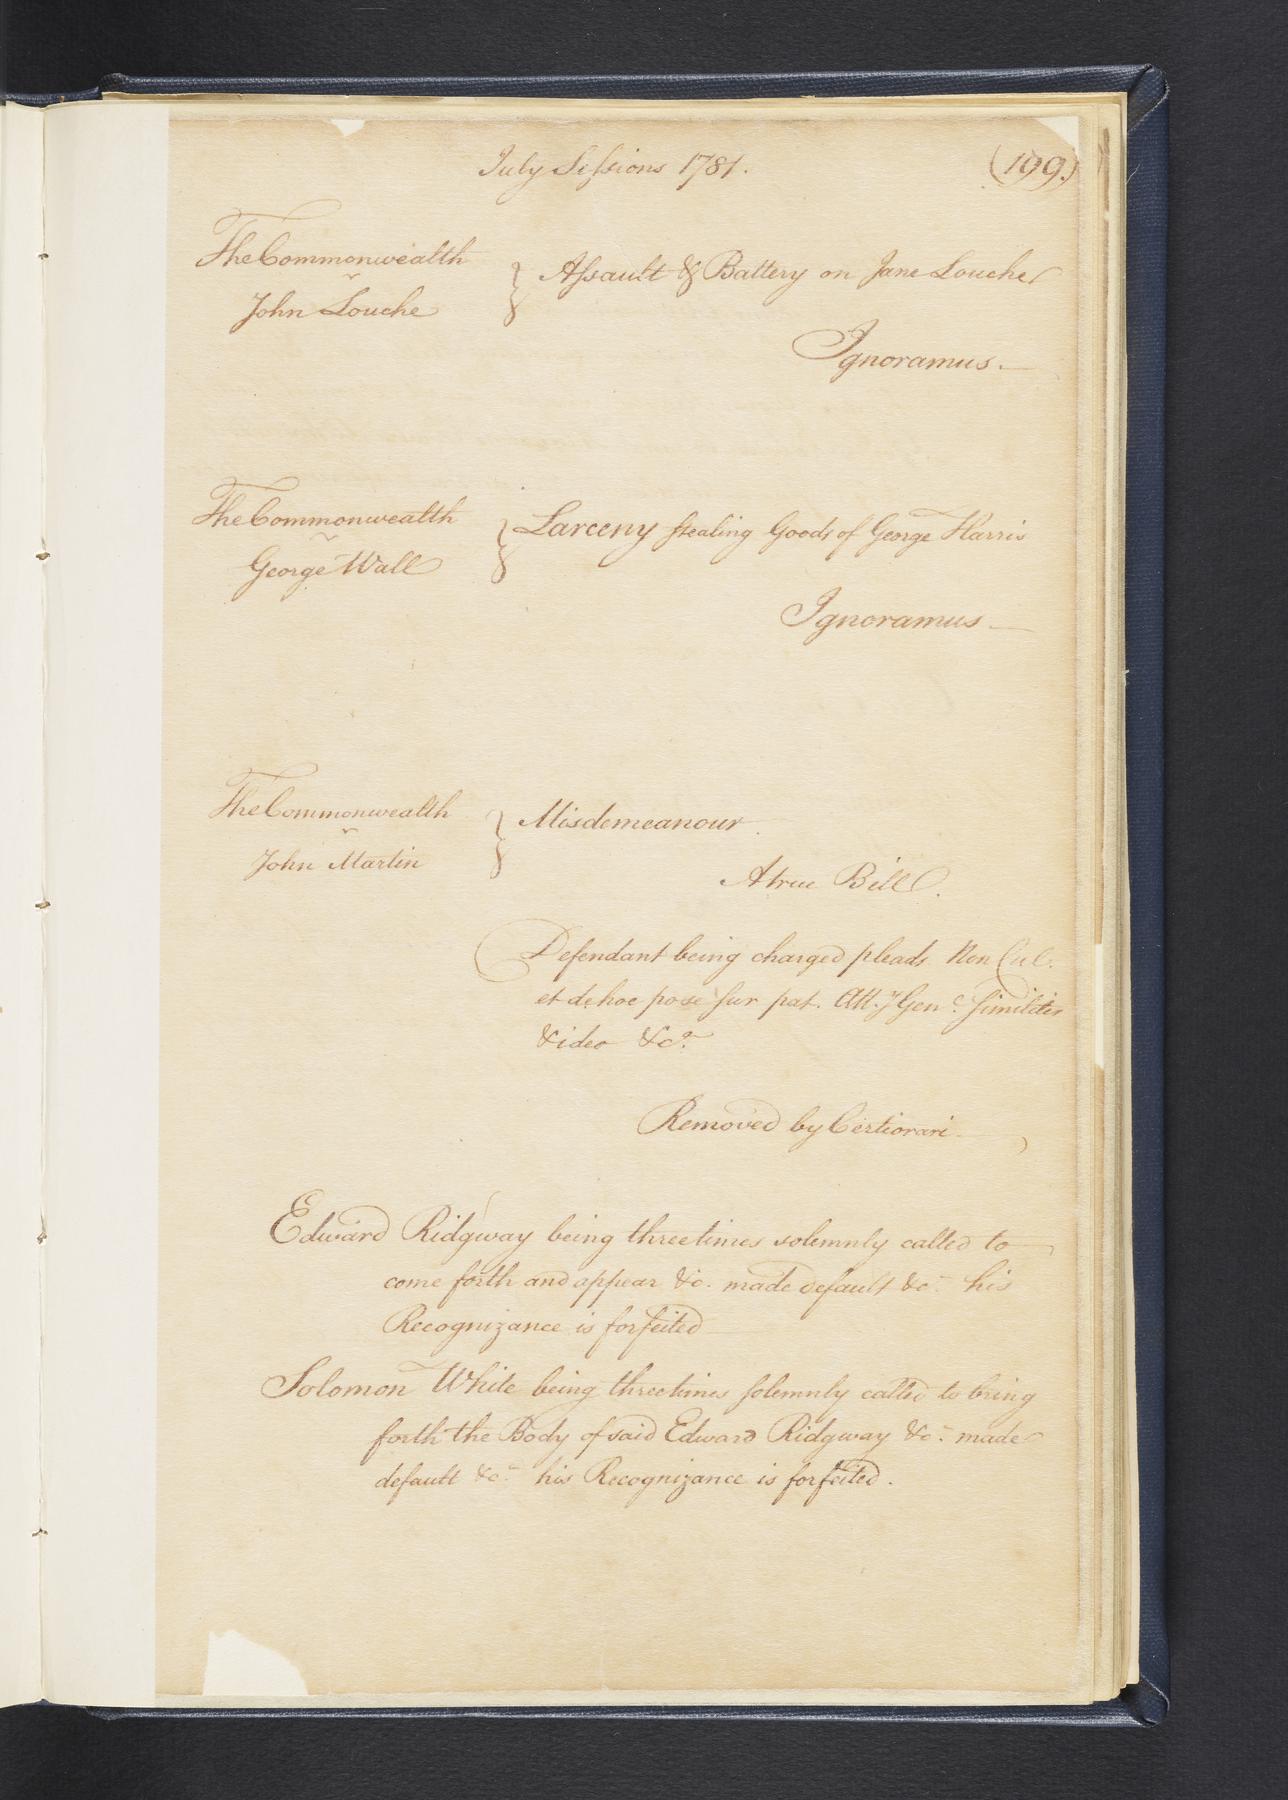 July Sessions 1781.
(199.)
The Commonwealth
v
John Louche
Assault & Battery on Jane Louche
Ignoramus.
The Commonwealth
v
George Wall
Larceny stealing Goods of George Harris
Ignoramus
The Commonwealth
v
John Martin
Misdemeanour.
A true Bill.
Defendant being charged pleads Non Cul.
et de hoc pose sur pat. Atty Genl Similiter
& ideo &ca
Removed by Certiorari
Edward Ridgway being three times solemnly called to
come forth and appear &c. made default &c. his
Recognizance is forfeited
Solomon White being three times solemnly called to bring
forth the Body of said Edward Ridgway &c. made
default &c. his Recognizance is forfeited.